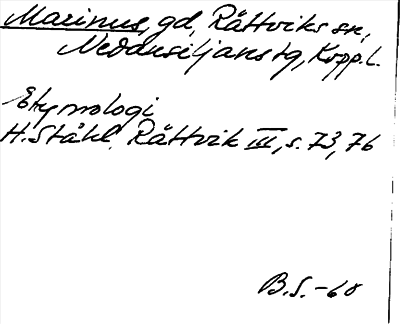 Marinus, gd, Rättviks sn,
Nedansiljans tg, Kopp. l.
Etymologi
H. Ståhl, Rättvik III, s. 73, 76
B.S. -60